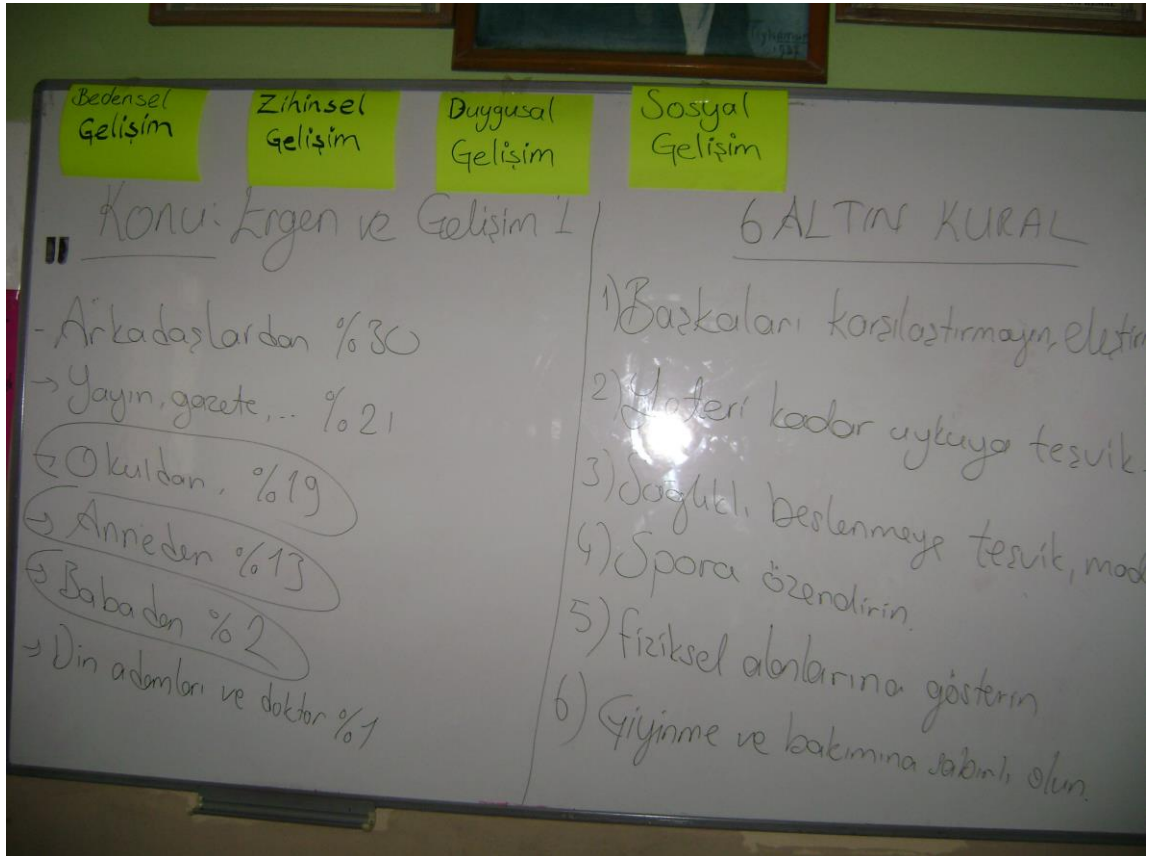 Bedensel
Gelişim
Zihinsel
Gelişim
Duygusal
Gelişim
Sosyal
Gelişim
Konu: Ergen ve Gelişim 1
- Arkadaşlardan %30
→ Yayın, gazete,... %21
→ Okuldan, %19
→ Anneden %13
→ Babadan %2
→ Din adamları ve doktor %1
6 ALTIN KURAL
1) Başkaları karşılaştırmayın, eleştir
2) Yateri kadar uykuya teşvik.
3) Sağlıklı beslenmeye teşvik, mod
4) Spora özendirin.
5) fiziksel alanlarına gösterin
6) Giyinme ve bakımına sabırlı olun.